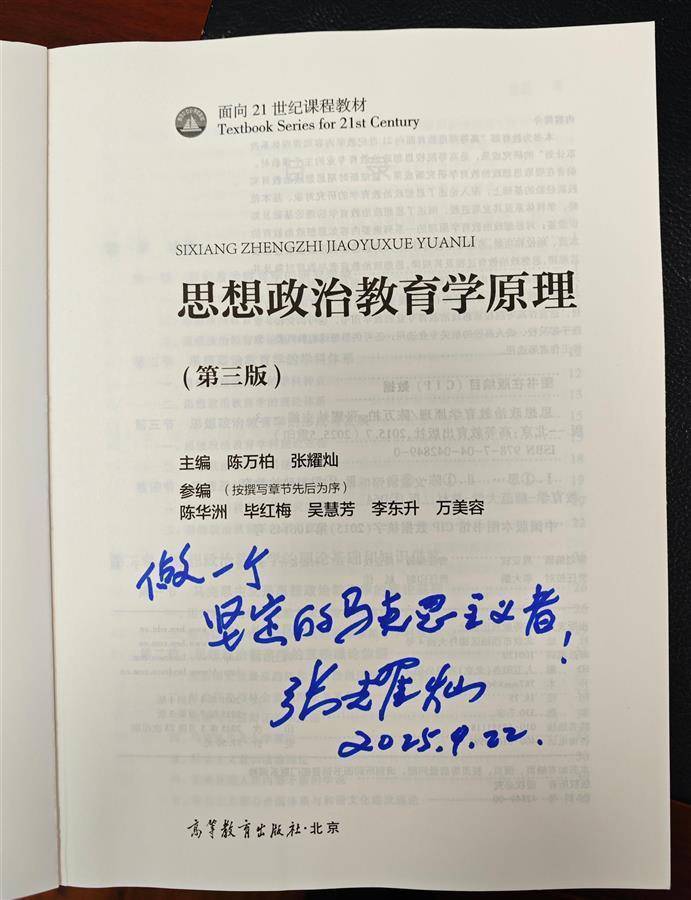 面向 21 世纪课程教材
Textbook Series for 21st Century
SIXIANG ZHENGZHI JIAOYUXUE YUANLI
思想政治教育学原理
（第三版）
主编 陈万柏 张耀灿
参编 （按撰写章节先后为序）
陈华洲 毕红梅 吴慧芳 李东升 万美容
做一个
坚定的马克思主义者！
张耀灿
2025.9.22.
高等教育出版社·北京